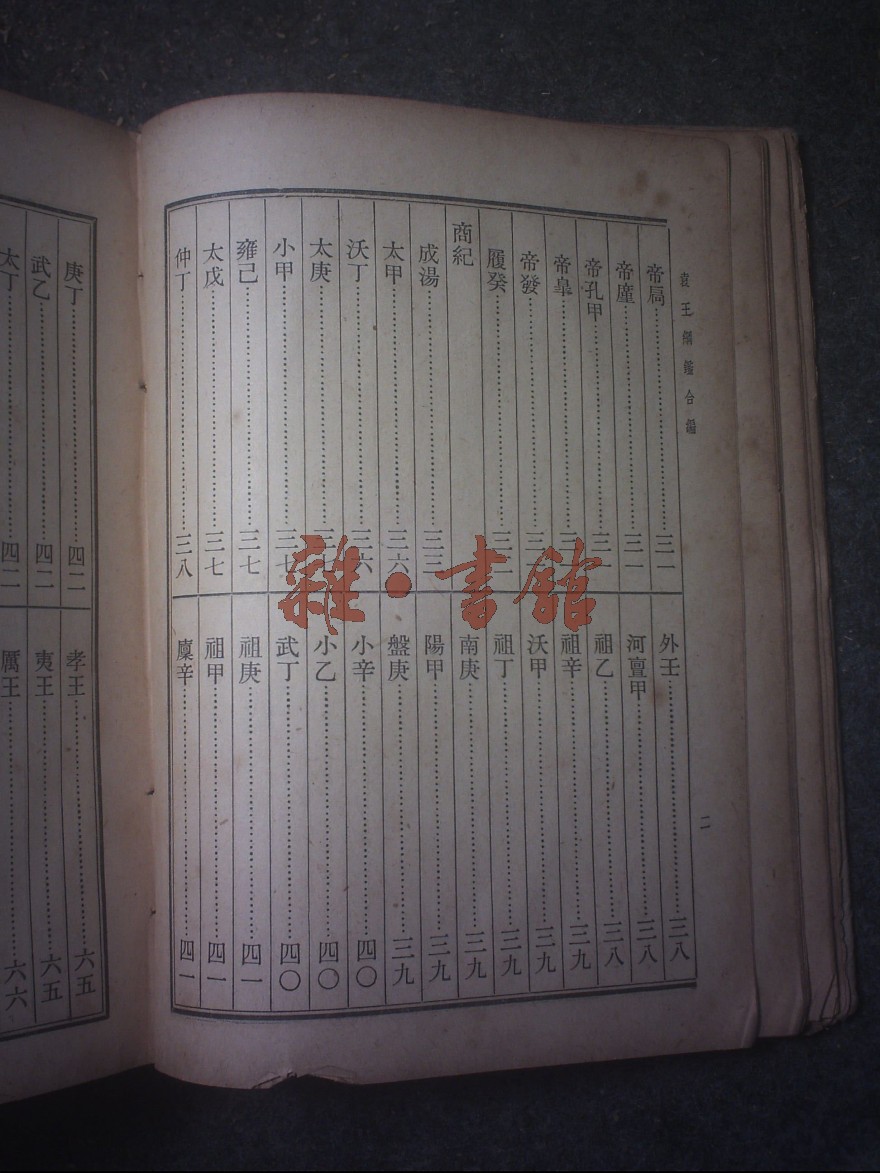 袁王綱鑑合編
二
帝扃………三一
帝廑………三一
帝孔甲………三一
帝皐………
帝發………
履癸………三二
商紀
成湯………三三
太甲………三六
沃丁………三六
太庚………三七
小甲………三七
雍己………三七
太戊………三七
仲丁………三八
外壬………三八
河亶甲………三八
祖乙………三八
祖辛………三九
沃甲………三九
祖丁………三九
南庚………三九
陽甲………三九
盤庚………三九
小辛………四〇
小乙………四〇
武丁………四〇
祖庚………四一
祖甲………四一
廩辛………四一
庚丁………四二
武乙………四二
太丁………四二
孝王………六五
夷王………六五
厲王………六六
雜·書館